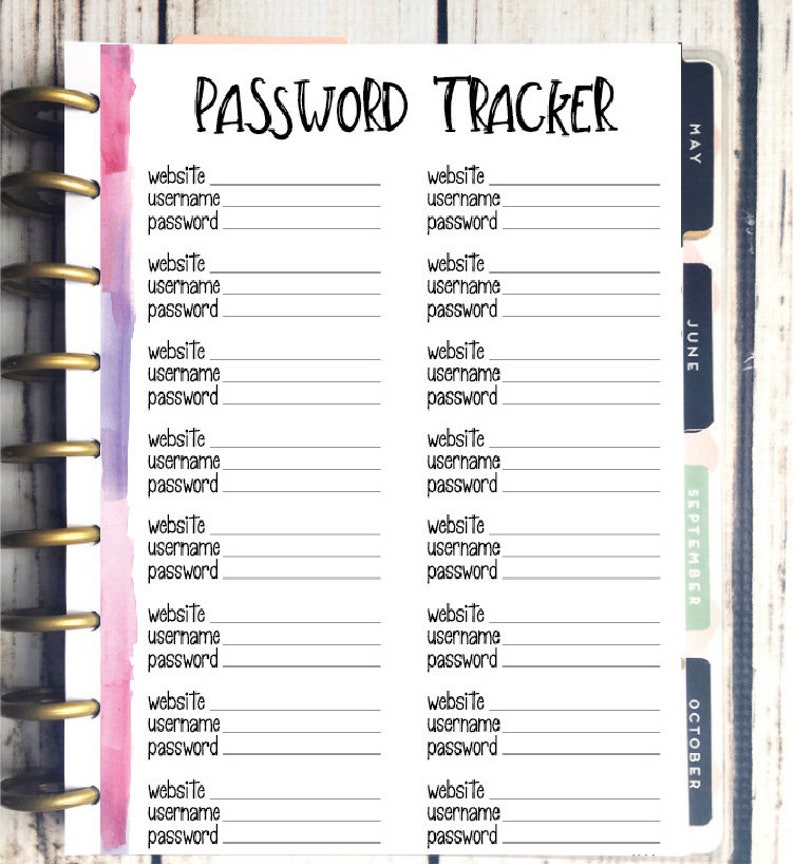 PASSWORD TRACKER
website
username
password
website
username
password
website
username
password
website
username
password
website
username
password
website
username
password
website
username
password
website
username
password
website
username
password
website
username
password
website
username
password
website
username
password
website
username
password
website
username
password
website
username
password
website
username
password
MAY
JUNE
SEPTEMBER
OCTOBER